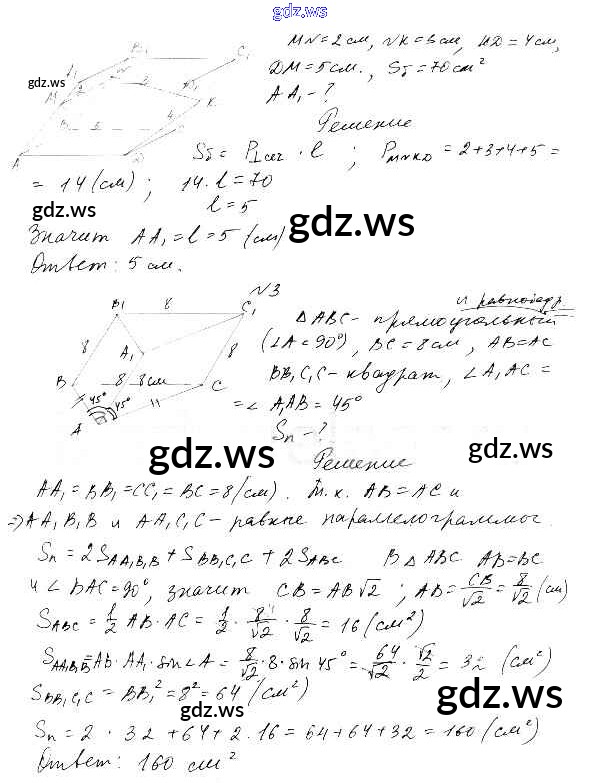 gdz.ws
MN=2см, NK=3см, KD=4см,
gdz.ws
DM=5см., Sδ=70см²
AA₁-?
Решение
Sδ=P⊥сеч·l ; P_MNKD=2+3+4+5=
=14(см); 14·l=70
l=5
gdz.ws
gdz.ws
Значит AA₁=l=5 (см)
Ответ: 5 см.
N3
и равнобедр.
△ABC-прямоугольный
(∠A=90°), BC=8см, AB=AC
BB₁C₁C-квадрат, ∠A₁AC=
=∠A₁AB=45°
Sп-?
gdz.ws
gdz.ws
Решение
AA₁=BB₁=CC₁=BC=8(см). Т.к. AB=AC и
⇒AA₁B₁B и AA₁C₁C-равные параллелограммы.
Sп=2S_AA₁B₁B+S_BB₁C₁C+2S_ABC В △ABC AB=BC
и ∠BAC=90°, значит CB=AB√2 ; AB=CB/√2=8/√2 (см)
S_ABC=1/2 AB·AC=1/2·8/√2·8/√2=16(см²)
S_AA₁B₁B=AB·AA₁·sin∠A=8/√2·8·sin45°=64/√2·√2/2=32 (см²)
S_BB₁C₁C=BB₁²=8²=64 (см²)
gdz.ws
gdz.ws
Sп=2·32+64+2·16=64+64+32=160(см²)
Ответ: 160 см²
gdz.ws